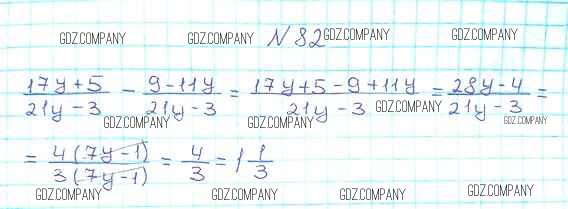 GDZ.COMPANY GDZ.COMPANY № 82 GDZ.COMPANY GDZ.COMPANY
(17y+5)/(21y-3) - (9-11y)/(21y-3) = (17y+5-9+11y)/(21y-3) = (28y-4)/(21y-3) =
GDZ.COMPANY GDZ.COMPANY GDZ.COMPANY GDZ.COMPANY
= (4(7y-1))/(3(7y-1)) = 4/3 = 1 1/3
GDZ.COMPANY GDZ.COMPANY GDZ.COMPANY GDZ.COMPANY